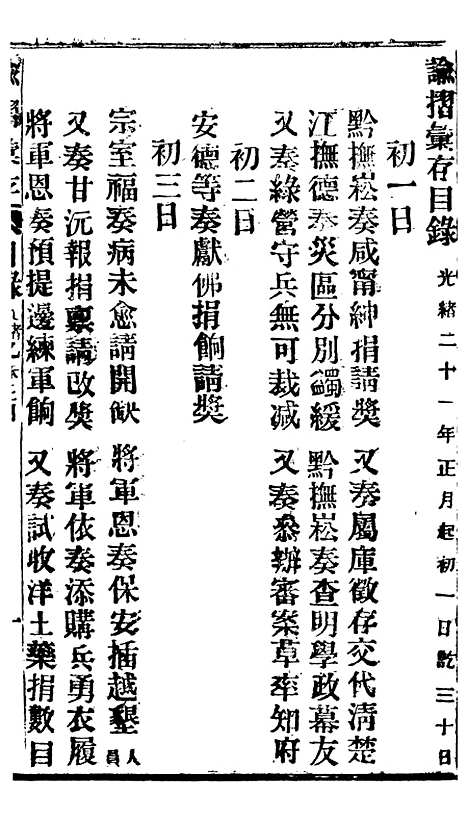 諭摺彙存目錄 光緒二十一年正月起初一日訖三十日
初一日
黔撫崧奏咸甯紳捐請獎 又奏屬庫徵存交代清楚
江撫德奏災區分別蠲緩 黔撫崧奏查明學政幕友
又奏綠營守兵無可裁減 又奏叅辦審案草率知府
初二日
安德等奏獻佛捐餉請獎
初三日
宗室福奏病未愈請開缺 將軍恩奏保安插越墾人員
又奏甘沅報捐稟請改獎 將軍依奏添購兵勇衣履
將軍恩奏預提邊練軍餉 又奏試收洋土藥捐數目
目錄
一